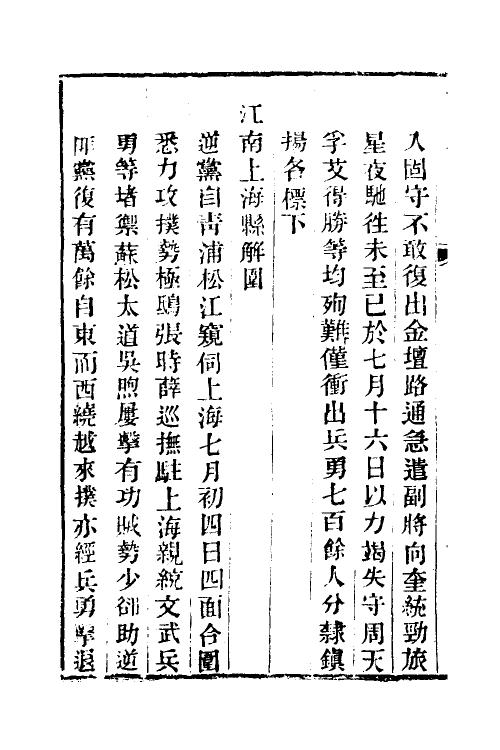 入固守不敢復出金壇路通急遣副將向奎統勁旅
星夜馳往未至已於七月十六日以力竭失守周天
孚艾得勝等均殉難僅衝出兵勇七百餘人分隸鎮
揚各標下
江南上海縣解圍
逆黨自靑浦松江窺伺上海七月初四日四面合圍
悉力攻撲勢極鴟張時薛巡撫駐上海親統文武兵
勇等堵禦蘇松太道吳煦屢擊有功賊勢少卻助逆
匪黨復有萬餘自東而西繞越來撲亦經兵勇擊退